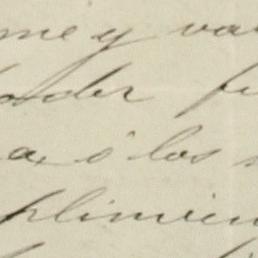 me y va
oder fu
a, ó los
plimien